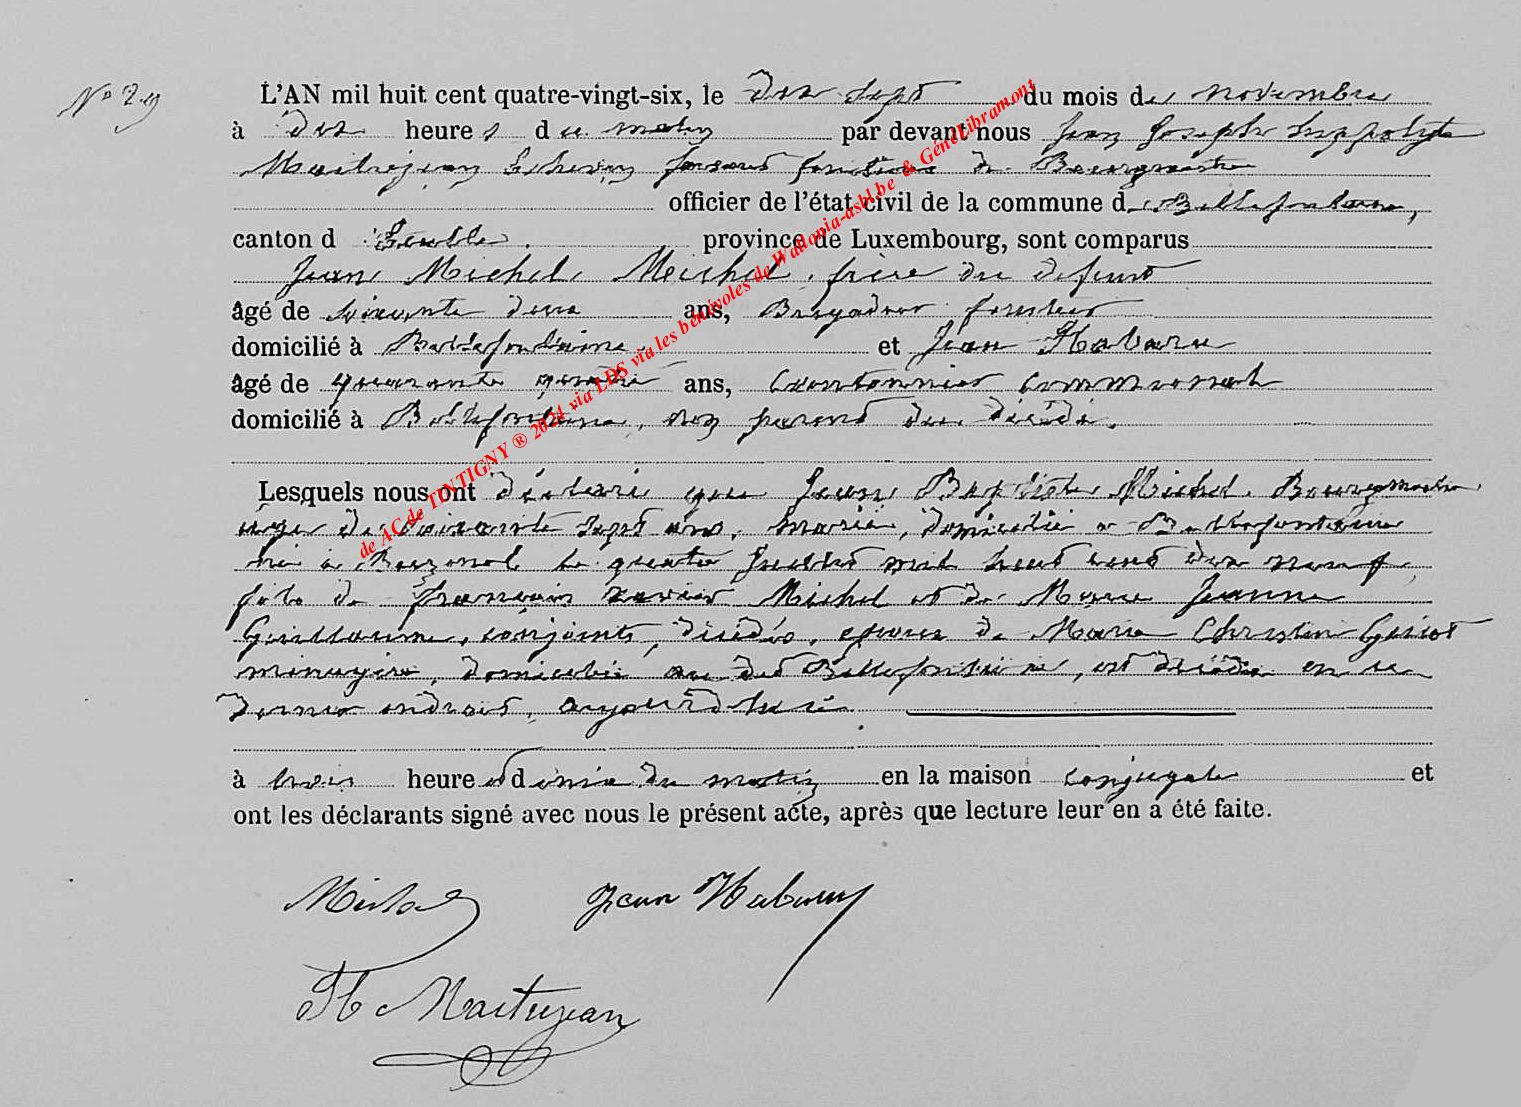 N° 29
L'AN mil huit cent quatre-vingt-six, le dix sept du mois de novembre
à dix heures du matin par devant nous Jean Joseph hyppolyte
Maitrejean Echevin faisant fonctions de Bourgmestre
officier de l'état civil de la commune de Bellefontaine,
canton d'Etalle. province de Luxembourg, sont comparus
Jean Michel Michel, frère du defunt
âgé de soixante deux ans, Brigadier forestier
domicilié à Bellefontaine et Jean Habaru
âgé de quarante quatre ans, Cantonnier communal
domicilié à Bellefontaine, non parent du décédé.
Lesquels nous ont déclaré que Jean Baptiste Michel, Bourgmestre
agé de soixante sept ans, marié, domicilié à Bellefontaine
né à le quatre Juillet mil huit cent dix neuf,
fils de françois xavier Michel et de Marie Jeanne
Guillaume, conjoints, décédés, époux de Marie Christine Guiot
ménagère, domiciliée au dit Bellefontaine, est décédé en ce
dernier endroit, aujourd'hui
à trois heure et demie du matin en la maison conjugale et
ont les déclarants signé avec nous le présent acte, après que lecture leur en a été faite.
Michel Jean Habaru
H Maitrejean
de AC de TINTIGNY ® 2024 via LDS via les bénévoles de Wallonia-asbl.be & GénéLibramont